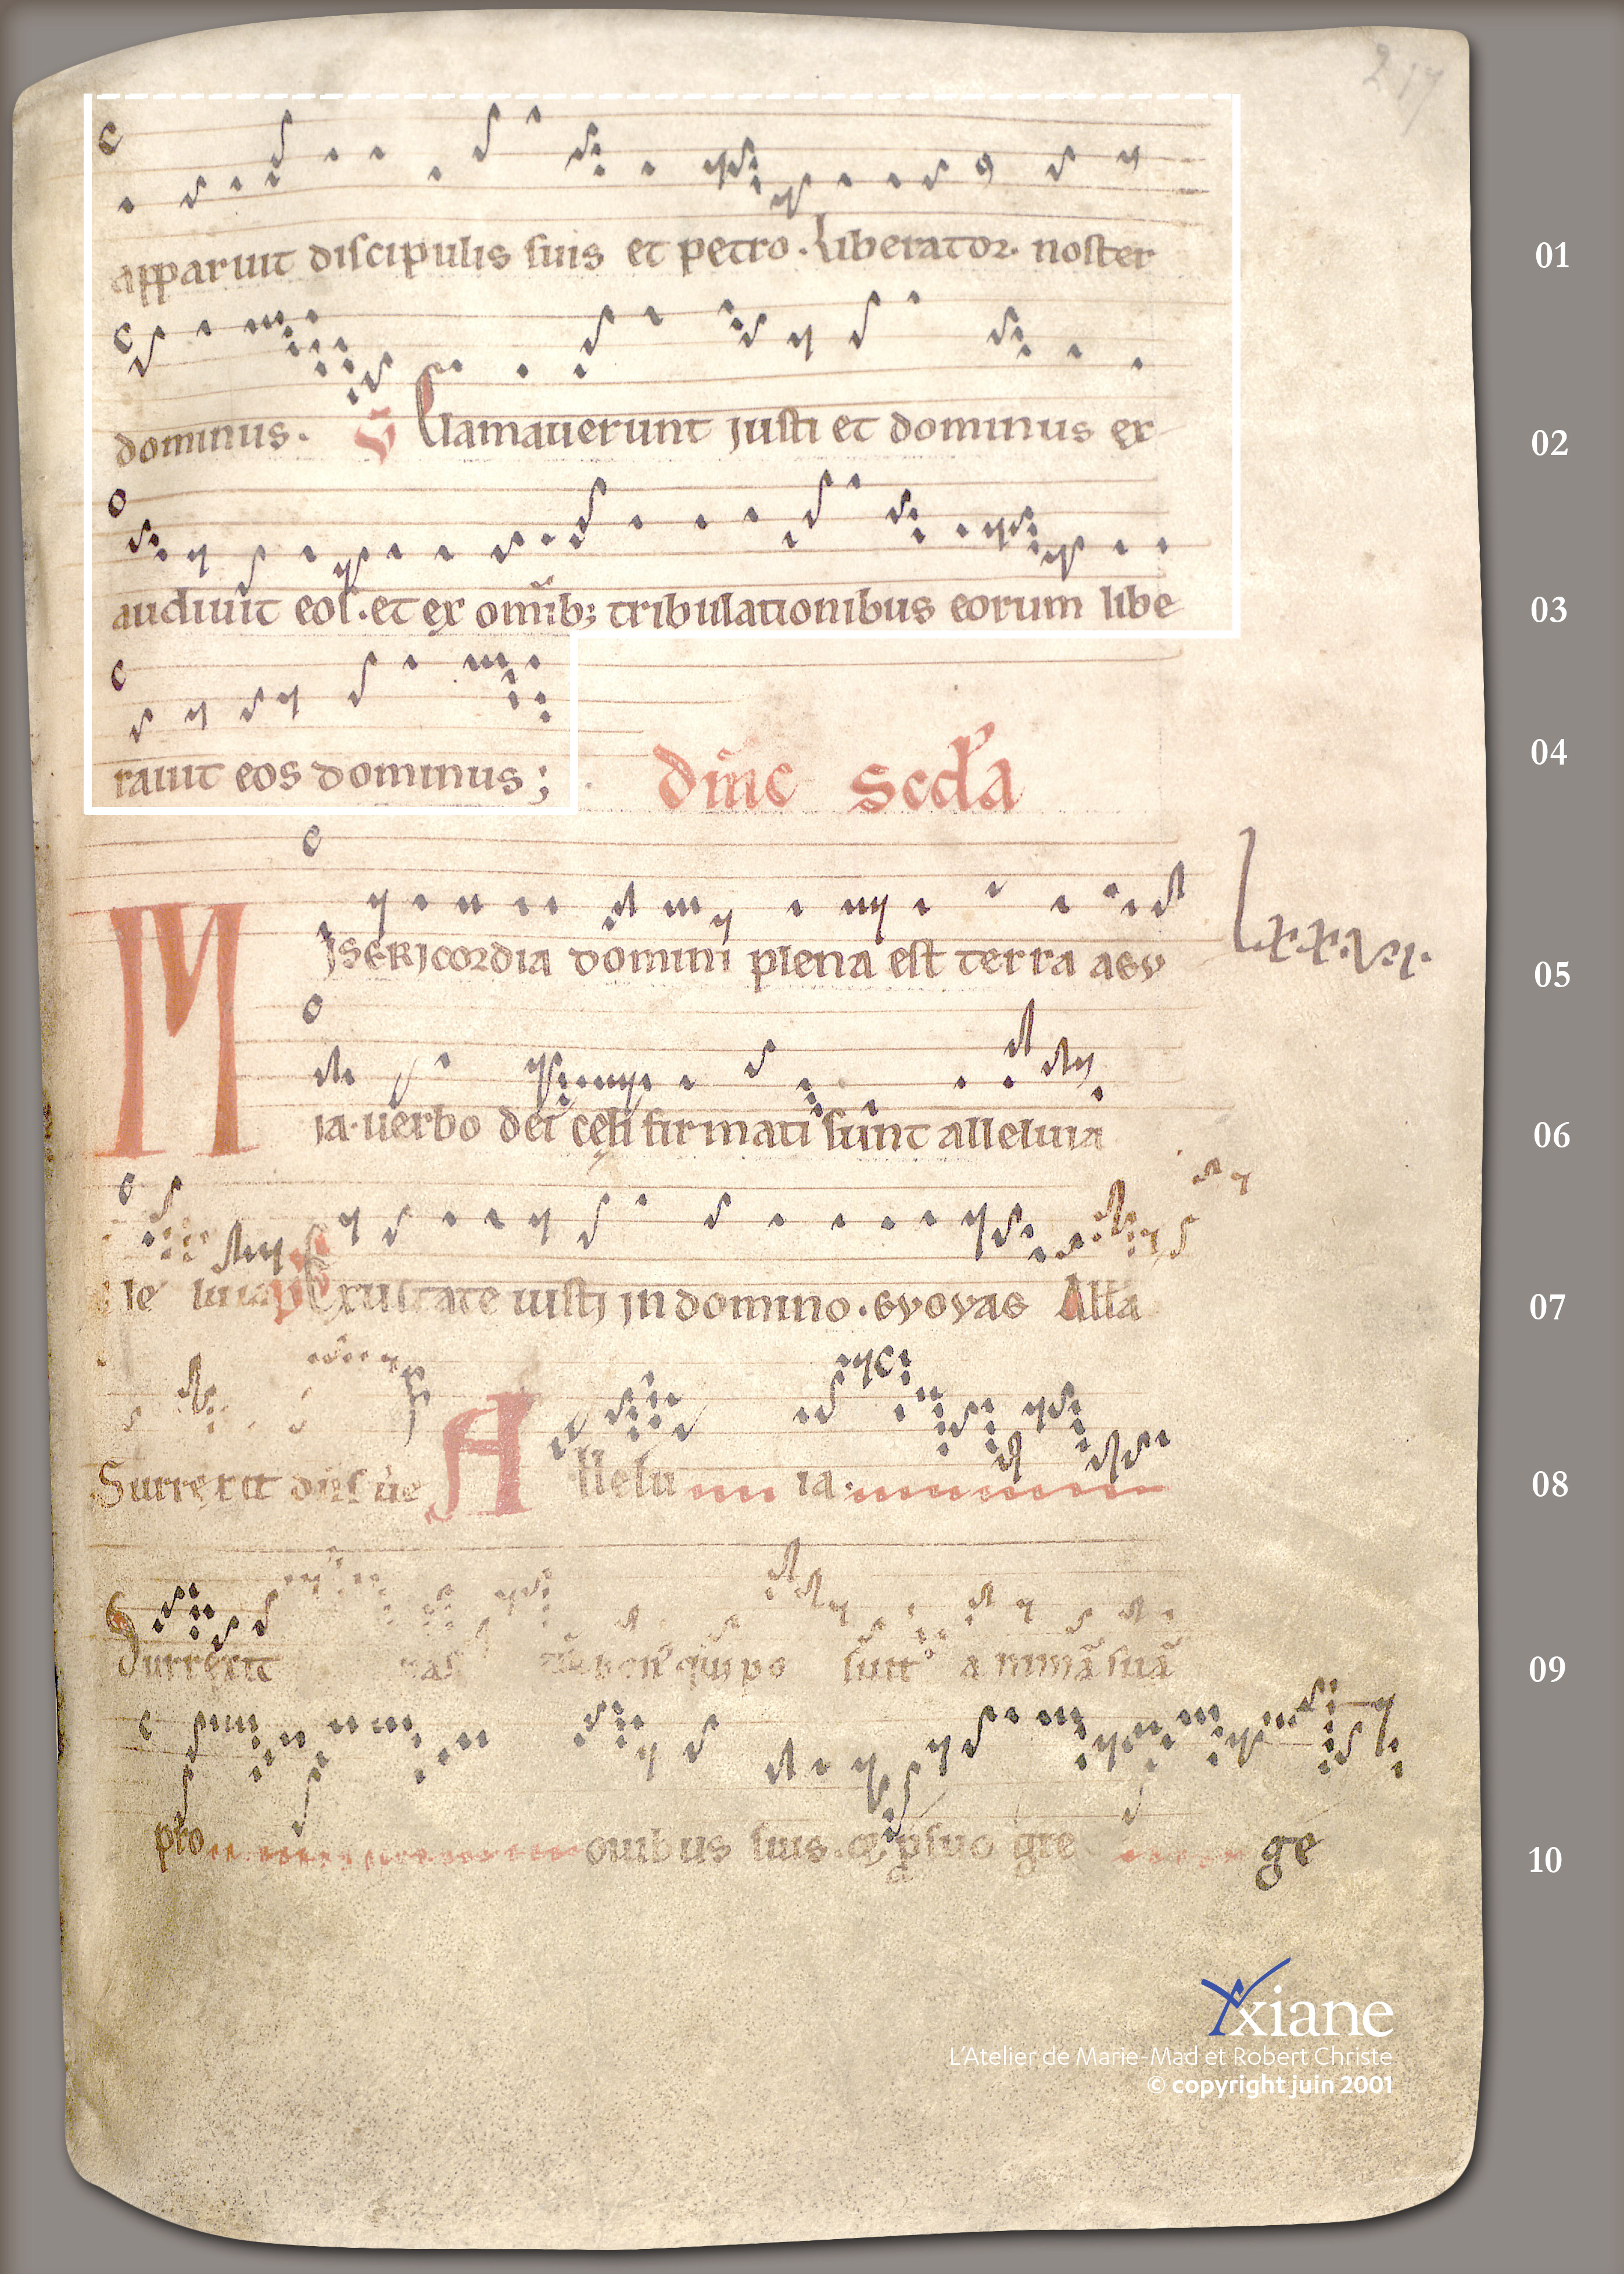 217
apparuit discipulis suis et petro. Liberator noster 01
dominus. Clamauerunt justi et dominus ex 02
audiuit eos. et ex omībꝫ tribulationibus eorum libe 03
rauit eos dominus; 04
dm̄c scd'a
Misericordia domini plena est terra aeu 05
Lxxvi.
ia. uerbo dei cęli firmati sunt alleluia 06
le luia ps Exultate iusti in domino. euouae All'ia 07
Surrexit dn̄s ue Allelu ia. 08
Surrexit pas bon' qui po suit animā suā 09
pro ouibus suis. suo gre ge 10
Yxiane
L'Atelier de Marie-Mad et Robert Christe
© copyright juin 2001